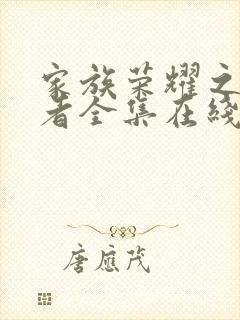 家族荣耀之
者全集在线
唐应茂